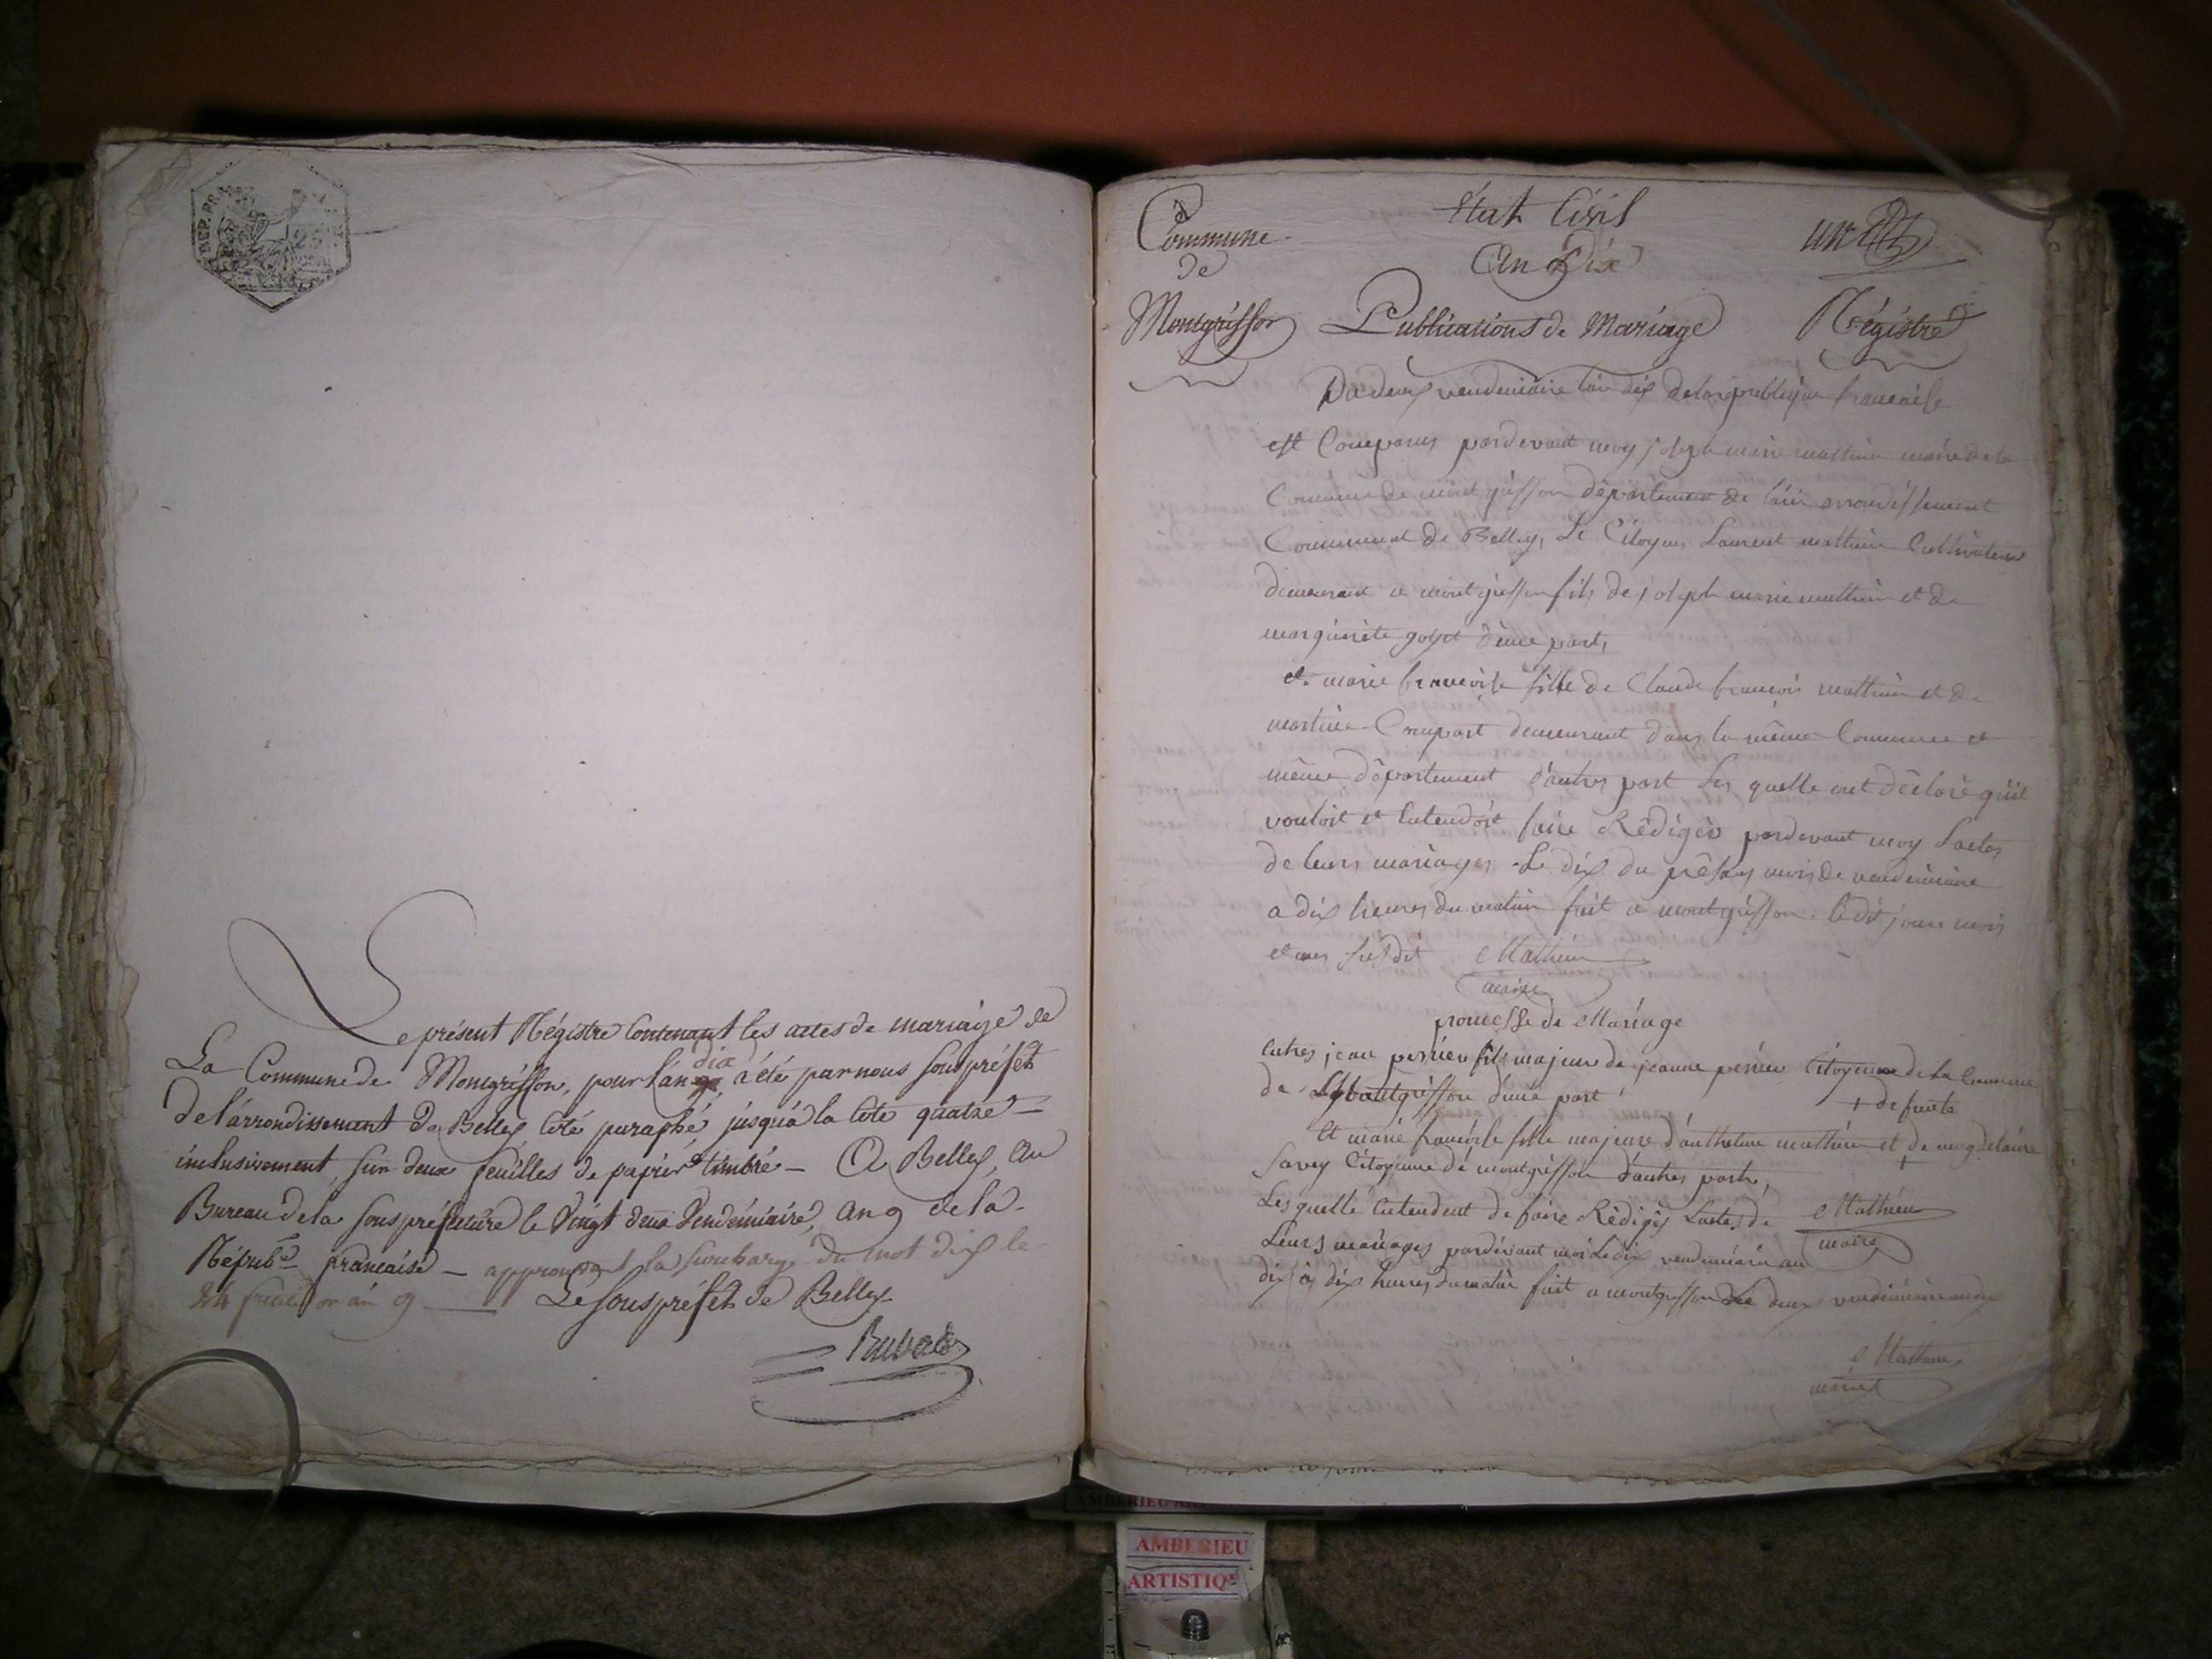 REP. FRA
Le présent Régistre Contenant les actes de mariage de
La Commune de Montgriffon, pour l'an dix, a été par nous sous préfet
de l'arrondissement de Belley, coté paraphé, jusqu'à la cote quatre
inclusivement, sur deux feuilles de papier timbré — A Belley, au
Bureau de la sous préfecture le Vingt deux Vendémiaire, an 9 de la
Républ. française — approuvant la surcharge du mot dix le
24 fructidor an 9 — Le sous préfet de Belley
Commune
de
Montgriffon
État Civil
An Dix
Publications de Mariage
un
Régistre
Du deux vendemiaire l'an dix de la republique francaise
est Comparus pardevant moy joseph marie mathieu maire de la
Commune de montgriffon département de l'ain arrondissement
Communal de Belley, Le Citoyen Laurent mathieu Cultivateur
demeurant a montgriffon fils de joseph marie mathieu et de
marguerite goyet d'une part,
et marie francoise fille de Claude francois mathieu et de
martine demeurant dans la même Commune et
même département d'autres part Les quelle ont déclaré qu'il
vouloit et Entendoit faire Rédiger pardevant moy Lactes
de leurs mariages Le dix du mois de vendemiaire
a dix heures du matin fait a montgriffon le dit jour mois
et an susdit Mathieu
maire
promesse de Mariage
Entres jean perrier fils majeur de jeanne perrier Citoyenne de la Commune
de Montgriffon d'une part
+ defunte
Et marie francoise fille majeure d'anthelme mathieu et + de magdelaine
Savey Citoyenne de montgriffon d'autres parts,
Les quelle Entendent de faire Rédiger Lactes de
Leurs mariages pardevant moi Le dix vendemiaire an
dix à dix heures du matin fait a montgriffon Le deux vendemiaire an dix
Mathieu
maire
Mathieu
maire
AMBERIEU
AMBERIEU
ARTISTIQUE